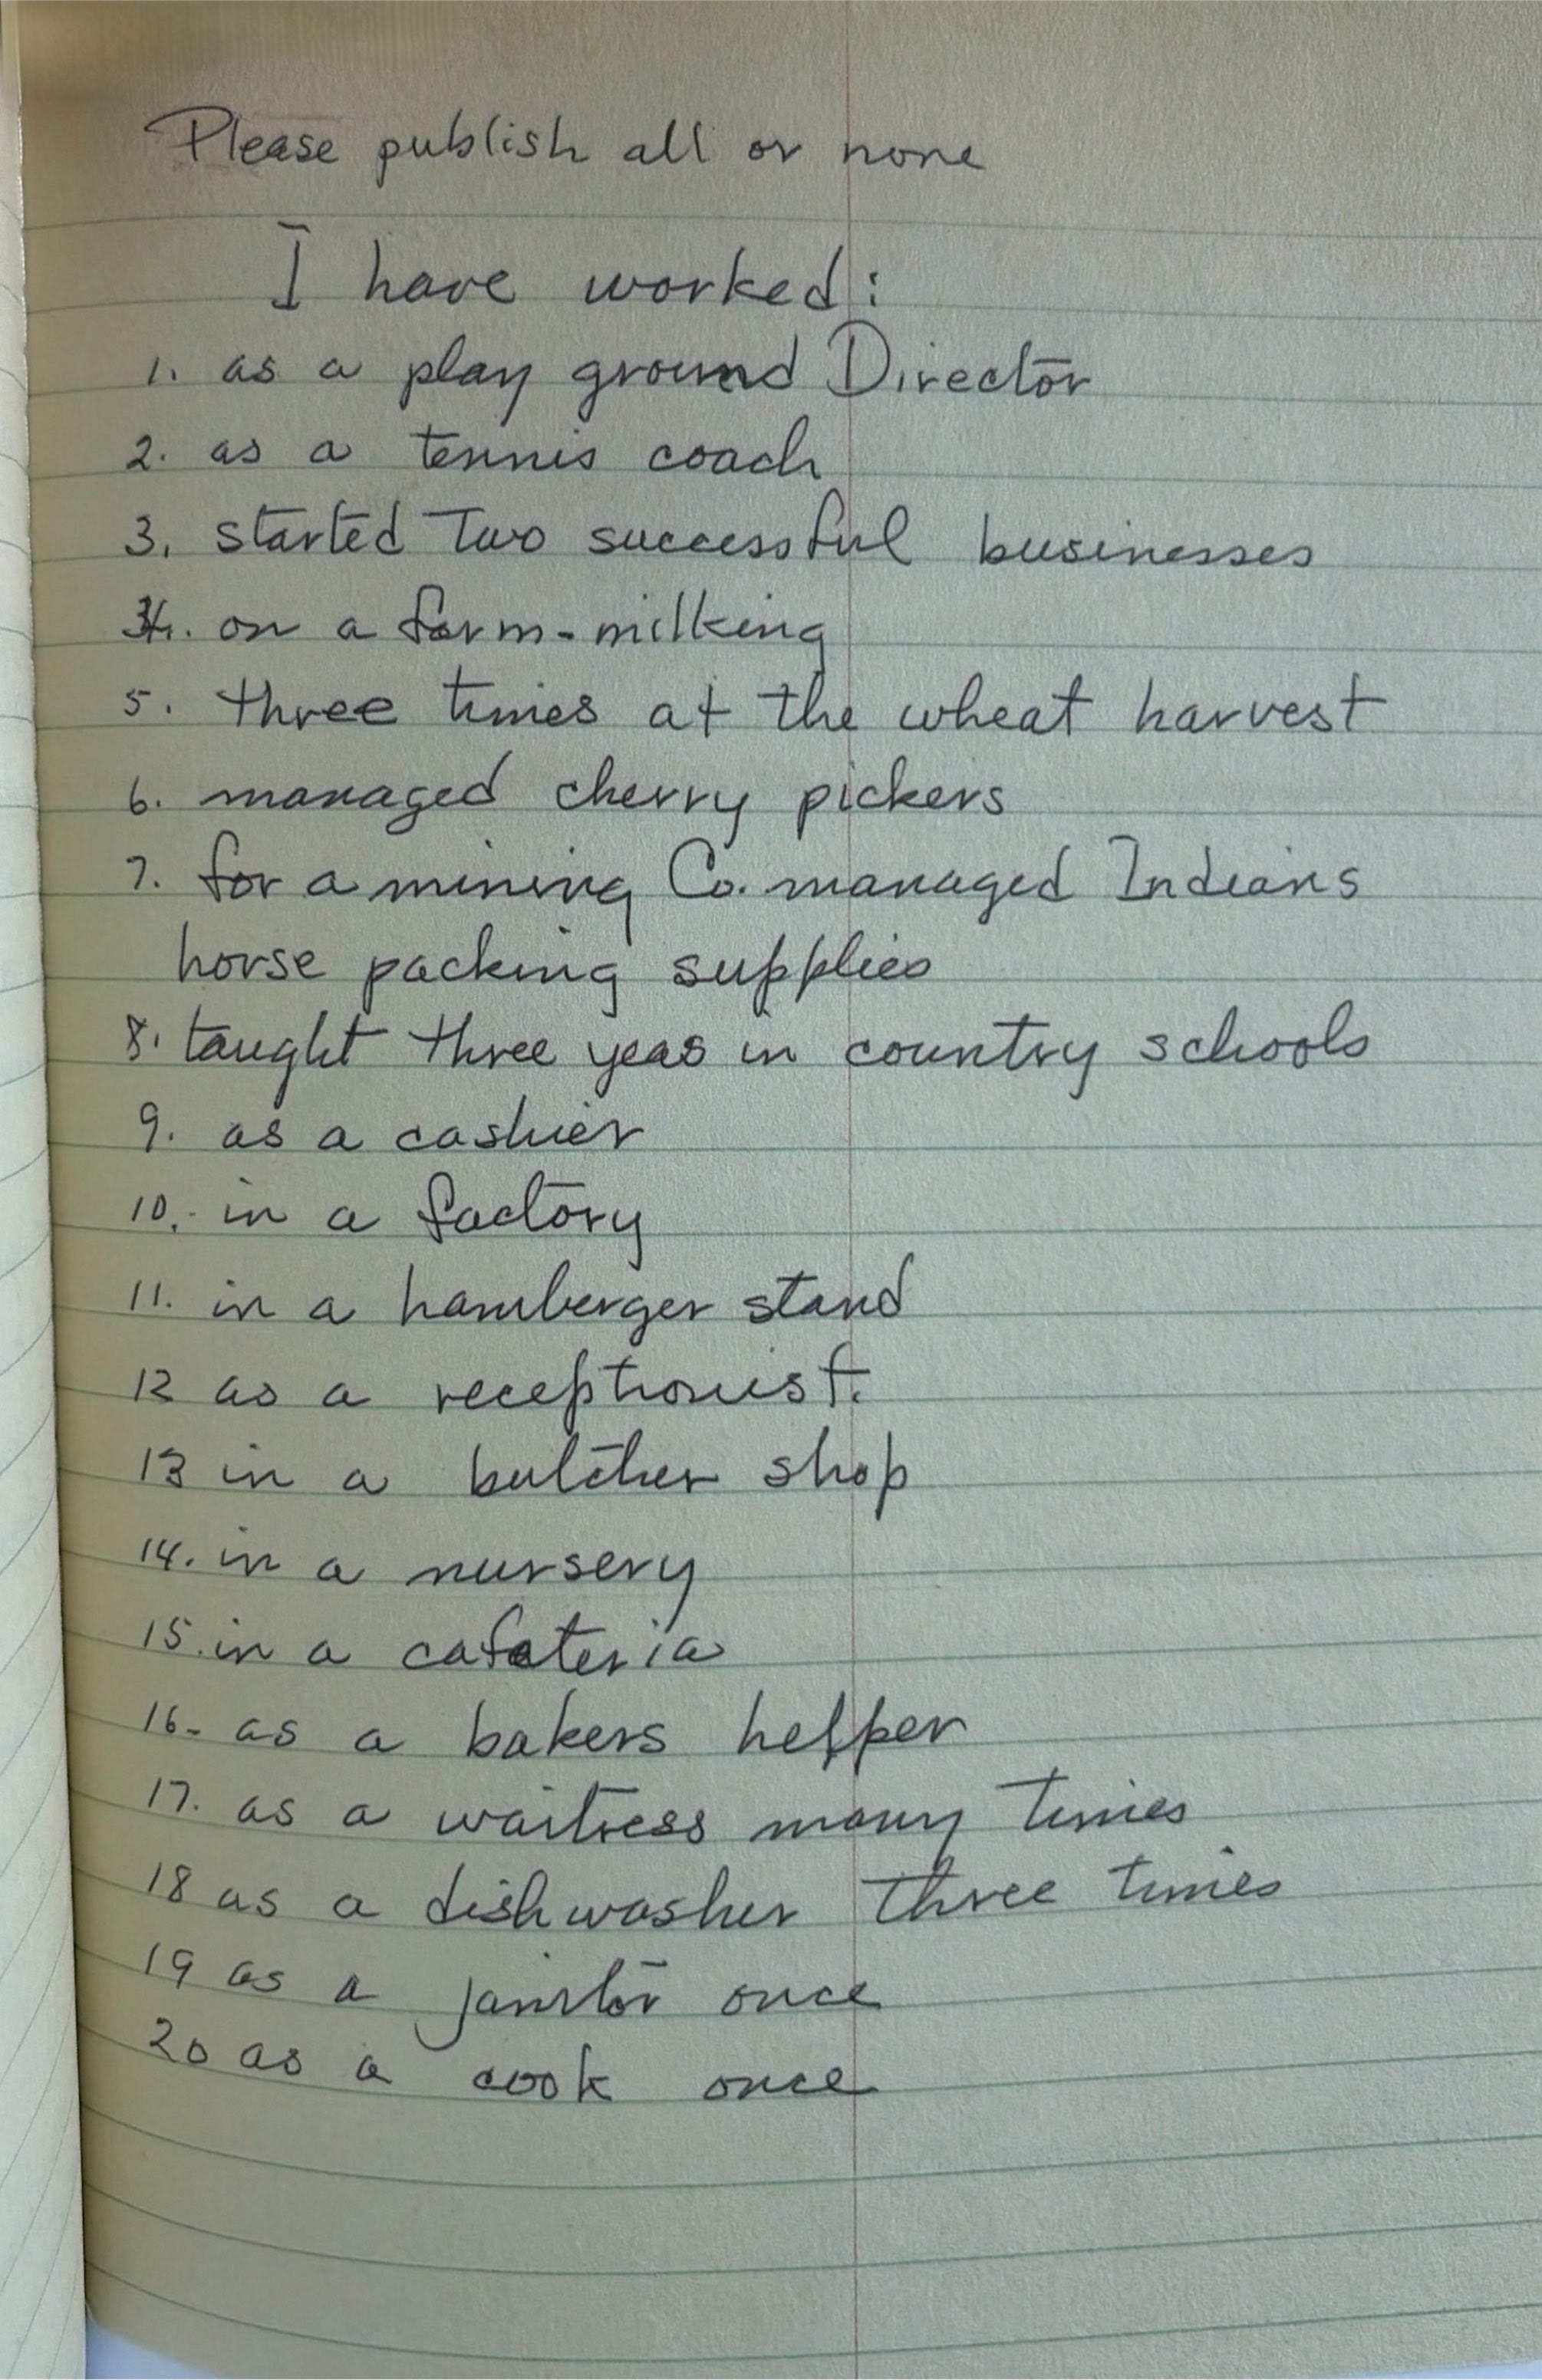 Please publish all or none
I have worked:
1. as a play ground Director
2. as a tennis coach
3. started Two successful businesses
4. on a farm - milking
5. three times at the wheat harvest
6. managed cherry pickers
7. for a mining Co. managed Indians
horse packing supplies
8. taught three yeas in country schools
9. as a cashier
10. in a factory
11. in a hamberger stand
12 as a receptionist.
13 in a butcher shop
14. in a nursery
15. in a cafeteria
16- as a bakers helper
17. as a waitress many times
18 as a dishwasher three times
19 as a janitor once
20 as a cook once